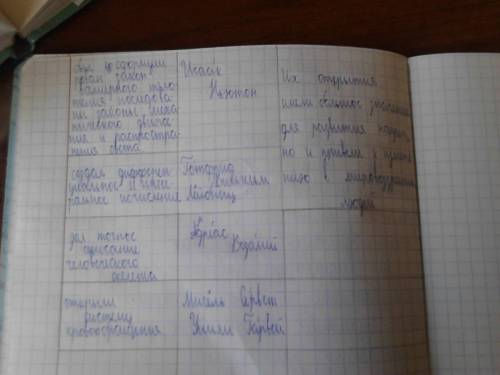 был
сформули
ровал закон
всемирного тяго
тения исследова
ны законы меха
нического движе
ния и распростра
нения света
Исаак
Ньютон
Их открытия
имели большое значение
для развития науки
но и привели к
в мировоззрении
людей
создал дифферен
циальное и инте
гральное исчисление
Готфрид
Вильгельм
Лейбниц
дал точное
описание
человеческого
скелета
Андреас
Везалий
открыли
систему
кровообращения
Мигель Сервет
Уильям Гарвей